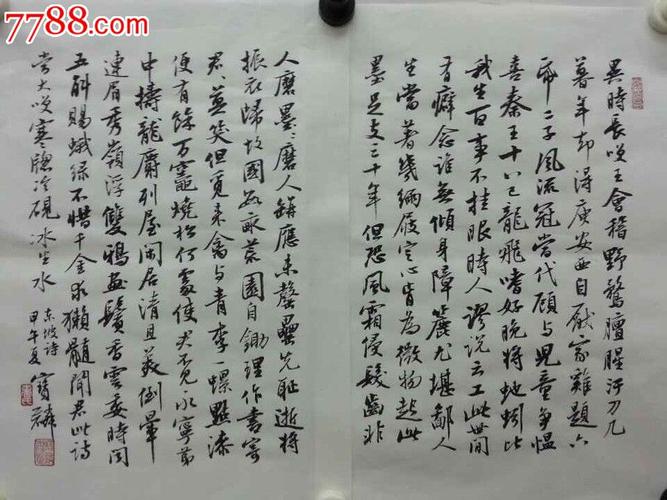 7788.com
異時長笑王會稽野鶩膻腥汙刀几
暮年却得庾安西自厭家雞題六
帋二子風流冠當代顧與兒童爭慍
喜秦王十八已龍飛嗜好晚將蛇蚓比
我生百事不挂眼時人謬說云工此世間
有癖念誰無傾身障簏尤堪鄙人
生當著幾緉屐定心肯為微物起此
墨足支三十年但恐風霜侵髮齒非
人磨墨〻磨人缾應未罄罍先耻逝將
振衣歸故國數畝荒園自鋤理作書寄
君〻莫笑但覓來禽與青李一螺點漆
便有餘万竈燒松何處使君不見永寧第
中擣龍麝列屋閒居清且美倒暈
連眉秀嶺浮雙鴉畫鬢香雲委時聞
五斛賜蛾綠不惜千金求獺髓聞君此詩
當大笑寒窗冷硯冰生水
東坡詩
甲午夏
寶麟